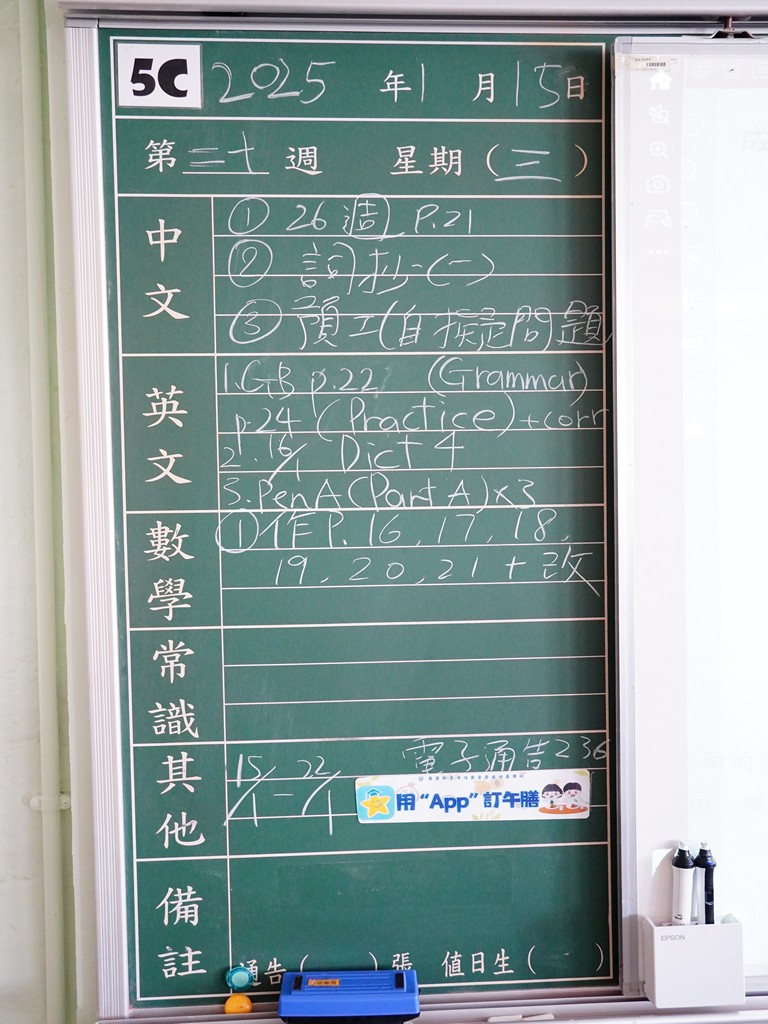 5C 2025 年 1 月 15 日
第 二十 週 星期 ( 三 )
中文
① 26 週 P.21
② 詞抄(一)
③ 預工(自擬問題
英文
1. GB p.22 (Grammar)
p.24 (Practice) + corr
2. 16/1 Dict 4
3. PenA (Part A) x3
數學
① 作P. 16, 17, 18,
19, 20, 21 + 改
常識
其他
電子通告236
15/1 - 22/1
用“App”訂午膳
備註
通告 ( ) 張 值日生 ( )
EPSON